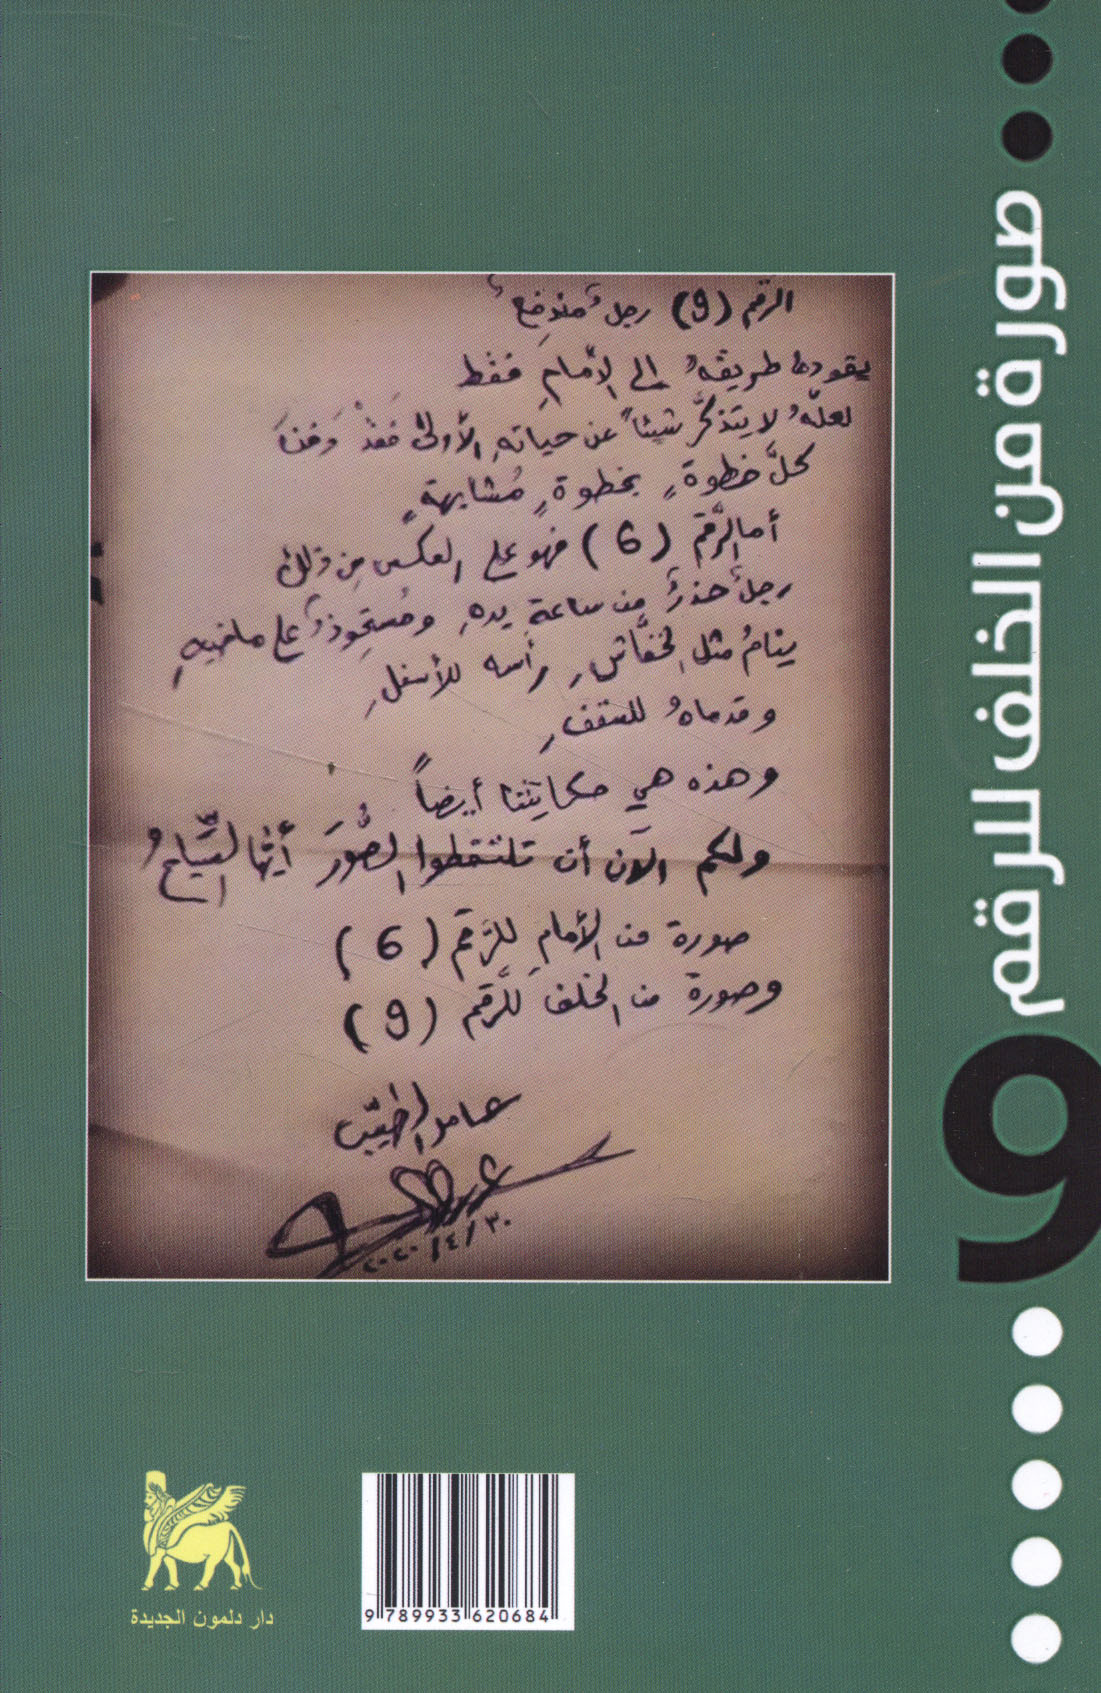 صورة من الخلف للرقم 9
الرّقم (9) رجلٌ مندفعٌ
يقودهُ طريقهُ إلى الأمامِ فقط
لعلّهُ لا يتذكَّر شيئاً عن حياتهِ الأولى فقدْ دَفنَ
كلَّ خطوةٍ بخطوةٍ مُشابهةٍ
أما الرَّقم (6) فهو على العكس من ذلك
رجلٌ حذرٌ من ساعة يدهِ ومُستحوذٌ على ماضيهِ
ينامُ مثل الخفَّاشِ رأسه للأسفلِ
وقدماهُ للسقفِ
وهذه هي حكايتنا أيضاً
ولكم الآن أن تلتقطوا الصُّورَ أيّها السّيّاحُ
صورة من الأمامِ للرَّقم (6)
وصورة من الخلف للَّرقم (9)
عامر الطيّب
٢٠٢٠/٤/٣٠
دار دلمون الجديدة
9 789933 620684